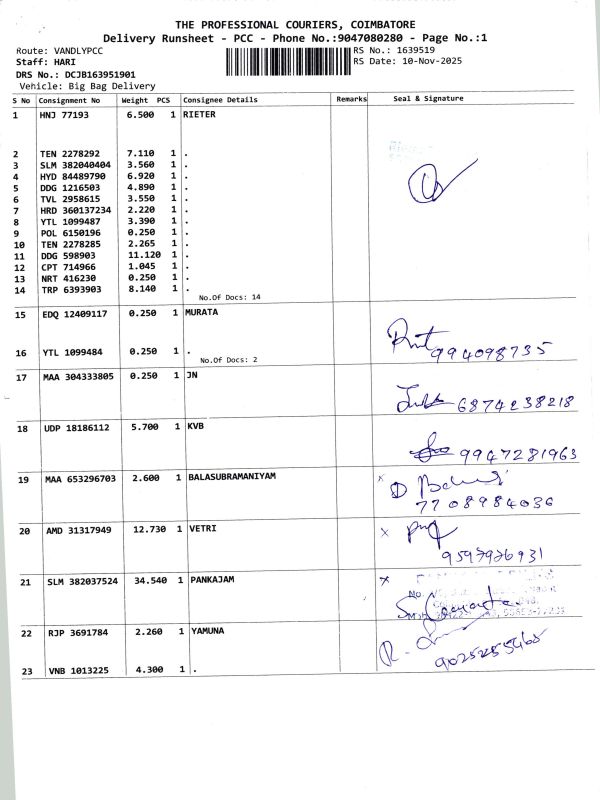 THE PROFESSIONAL COURIERS, COIMBATORE
Delivery Runsheet - PCC - Phone No.:9047080280 - Page No.:1
Route: VANDLYPCC
RS No.: 1639519
Staff: HARI
RS Date: 10-Nov-2025
DRS No.: DCJB163951901
Vehicle: Big Bag Delivery
S No Consignment No Weight PCS Consignee Details Remarks Seal & Signature
1 HNJ 77193 6.500 1 RIETER
2 TEN 2278292 7.110 1 .
3 SLM 382040404 3.560 1 .
4 HYD 84489790 6.920 1 .
5 DDG 1216503 4.890 1 .
6 TVL 2958615 3.550 1 .
7 HRD 360137234 2.220 1 .
8 YTL 1099487 3.390 1 .
9 POL 6150196 0.250 1 .
10 TEN 2278285 2.265 1 .
11 DDG 598903 11.120 1 .
12 CPT 714966 1.045 1 .
13 NRT 416230 0.250 1 .
14 TRP 6393903 8.140 1 .
No.Of Docs: 14
15 EDQ 12409117 0.250 1 MURATA
16 YTL 1099484 0.250 1 .
994098735
No.Of Docs: 2
17 MAA 304333805 0.250 1 JN
6874238218
18 UDP 18186112 5.700 1 KVB
9947281963
19 MAA 653296703 2.600 1 BALASUBRAMANIYAM
7708984036
20 AMD 31317949 12.730 1 VETRI
9597926931
21 SLM 382037524 34.540 1 PANKAJAM
22 RJP 3691784 2.260 1 YAMUNA
9025255465
23 VNB 1013225 4.300 1 .